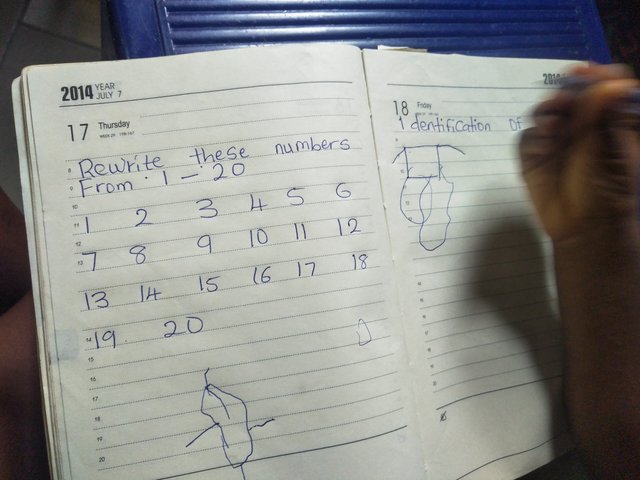 2014 YEAR
JULY 7
17 Thursday
Rewrite these numbers
From 1 - 20
1 2 3 4 5 6
7 8 9 10 11 12
13 14 15 16 17 18
19 20
2014
18 Friday
Identification of